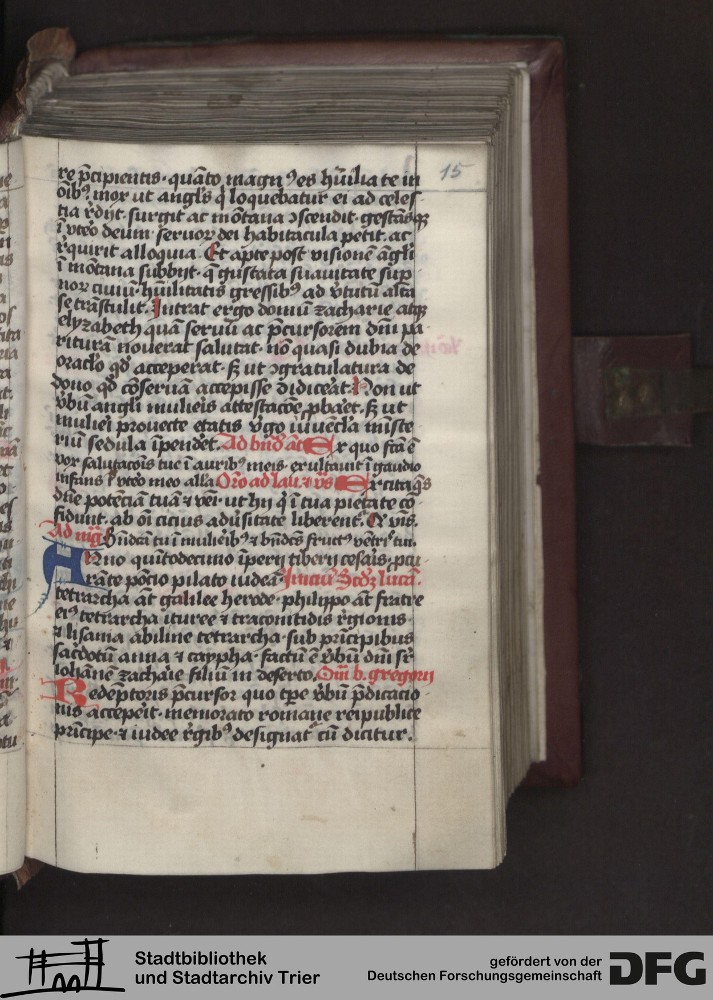 15
re p̄cipientis · quāto magn ꝰes hūilia te in
oībꝰ, mox ut angl's q̄ loquebatur ei ad celes
tia r̄dijt · surgit ac mōtana ↄscendit · gestāsqꝫ
ī vteō deum · seruor dei habitacula petit · ac
r̄quirit alloquia. Et apte post visionē āgli
ī mōtana subbijt · q̄ gustata suauitate sup
nor ciuiū · hūilitatis gressibꝰ ad v̄tutū alta
se trāstulit. Intrat ergo domū zacharie atqꝫ
elyzabeth quā seruū ac p̄cursorem dn̄i pa
riturā nouerat salutat · nō quasi dubia de
oraclo qd̄ acceperat · sꝫ ut ↄgratulatura de
dono qd̄ cōseruā accepisse didiceāt. Non ut
v̄bū angli mulieis attestacōe p̱baēt · sꝫ ut
muliei prouecte etatis v̄go iuuēcla mīste
riū sedula īpendet. Ad bn̄d' āt Ex quo fc̄a ē
vox salutacōis tue ī auribꝰ meis · exultauit ī gaudio
infans ī vteō meo alla Orō ad lau. ⁊ v̄s Excita q̄s
dn̄e potēciā tuā ⁊ vēi · ut hij q̄ ī tua pietate cō
fidunt · ab oī cicius adūsitate liberent. Qͥ vis.
Ad mīg̃ Bn̄dcā tu ī muliēibꝰ ⁊ bn̄dcꝰs fructꝰ vētrꝭ tui.
Anno quītodecimo īperij tiberij cesaīs · pcu
rāte pōcio pilato iudeā Iniciū Scd'ꝫ lucā.
tetrarcha āt galilee herode · philippo āt fratre
eiꝰ tetrarcha ituree ⁊ traconitidis r̄gionis ·
⁊ lisania abiline tetrarcha · sub prīcipibus
sac̄dotū anna ⁊ caypha · factū ē v̄bū dn̄i sr̄
iohānē zachaie filiū in deserto. Om̄ b. gregorij
Redēptoris p̄cursor quo tp̄e v̄bū p̄dicacio
nis accepeit · memorato romane reipublice
prīcipe · ⁊ iudee r̄gibꝰ designat̄ cū dicitur.
Stadtbibliothek
und Stadtarchiv Trier
gefördert von der
Deutschen Forschungsgemeinschaft
DFG